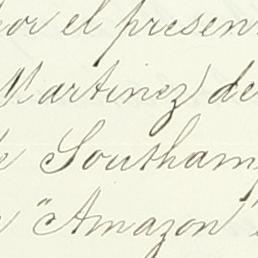 por el presen
Martinez de
Southam
"Amazon"